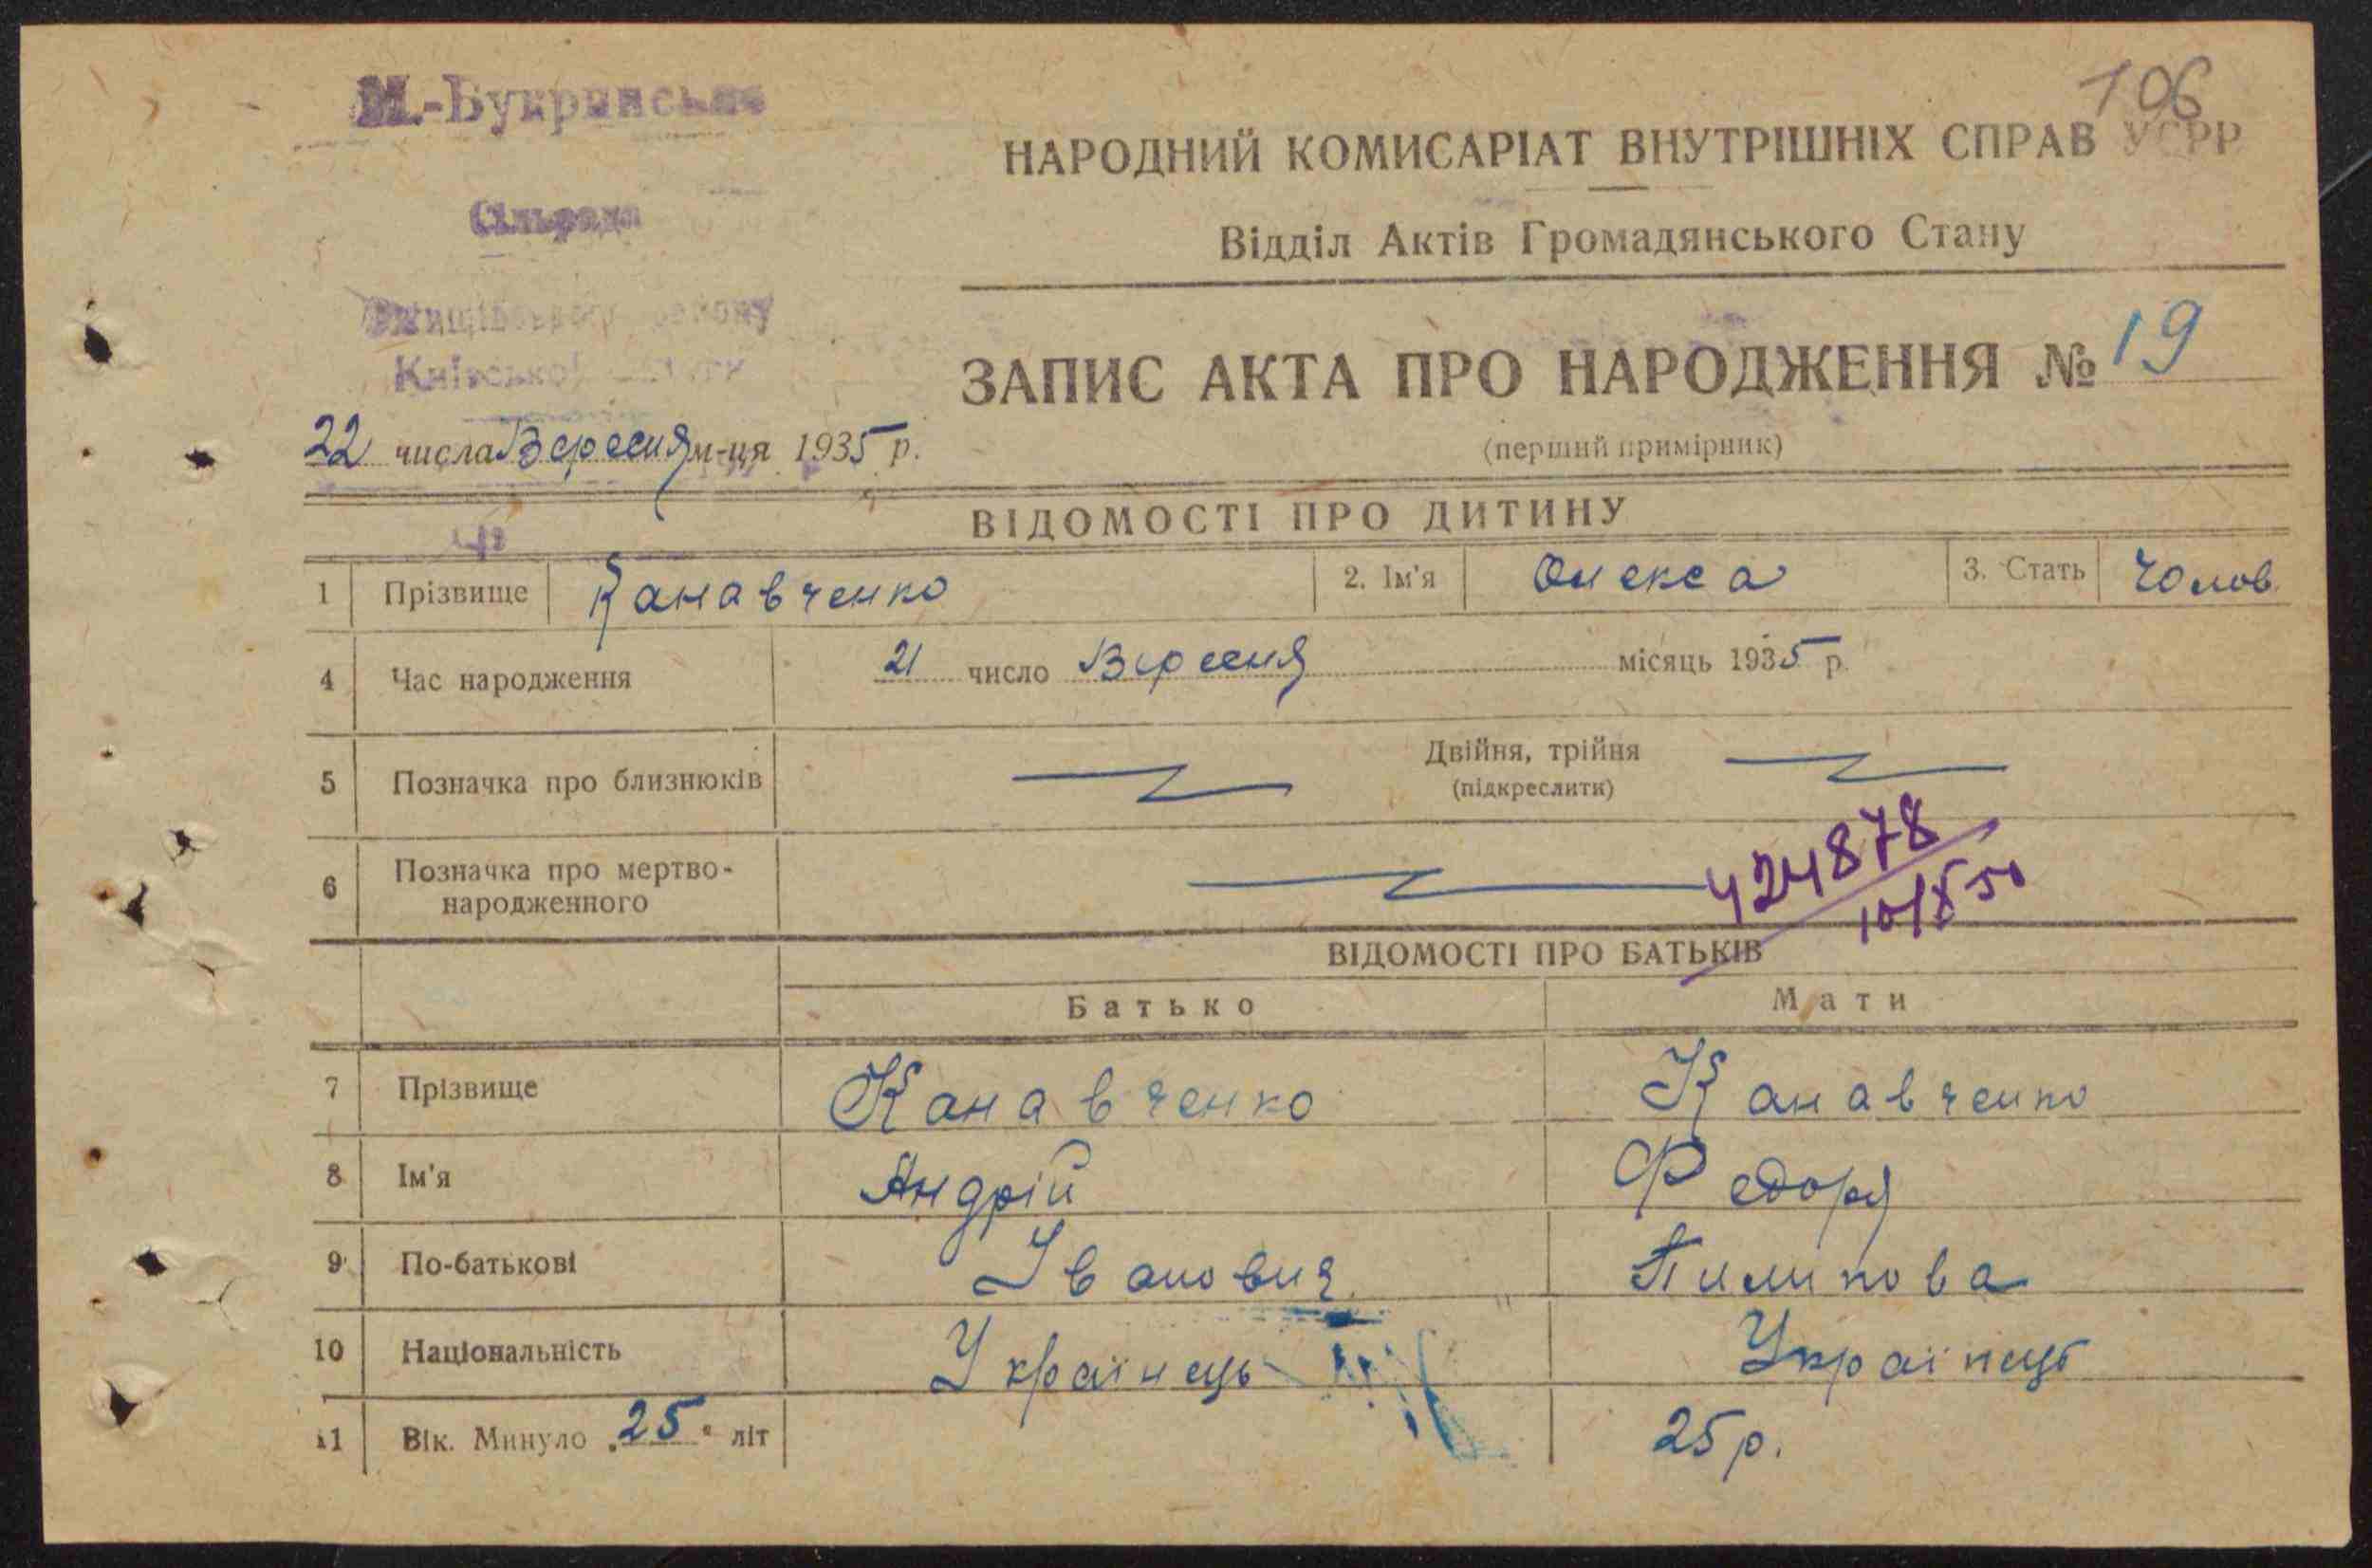 106
М.-Букринська
НАРОДНИЙ КОМИСАРІАТ ВНУТРІШНІХ СПРАВ УСРР
Сільрада
Відділ Актів Громадянського Стану
району
Київської
ЗАПИС АКТА ПРО НАРОДЖЕННЯ № 19
22 числа Вересня м-ця 1935 р.
(перший примірник)
ВІДОМОСТІ ПРО ДИТИНУ
1 Прізвище Канавченко 2. Ім'я Олекса 3. Стать Чолов.
4 Час народження 21 число Вересня місяць 1935 р.
5 Позначка про близнюків Двійня, трійня
(підкреслити)
424878
6 Позначка про мертво-
народженного
ВІДОМОСТІ ПРО БАТЬКІВ
Батько Мати
7 Прізвище Канавченко Канавченко
8 Ім'я Андрій Федоря
9 По-батькові Іванович Пилипова
10 Національність Українець Українець
11 Вік. Минуло „25“ літ 25 р.